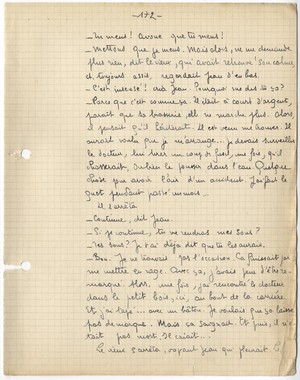 -172-
- Tu mens ! Avoue que tu mens !
- Mettons que je mens. Mais alors, ne me demande
plus rien, dit le vieux, qui avait retrouvé son calme,
et, toujours assis, regardait Jean d'en bas.
- C'est insensé ! cria Jean. Pourquoi me dis-tu ça ?
- Parce que c'est comme ça. Il était à court d'argent,
paraît que sa brasserie, elle ne marche plus. Alors,
il pensait qu'il hériterait. Il est venu me trouver. Il
aurait voulu que je m'arrange... je devais surveiller
le docteur, lui tirer un coup de fusil, une fois, qu'il
passerait, ou bien le pousser dans l'eau. Quelque
chose qui avoir l'air d'un accident. J'ai fait le
guet pendant passé un mois
Il s'arrêta
- Continue, dit Jean.
- Si je continue, tu me rendras mes sous ?
- Tes sous ? Je t'ai déjà dit que tu les aurais.
- Bon. Je ne trouvais pas l'occasion. Ça finissait par
me mettre en rage. Avec ça, j'avais peur d'être
marqué. Alors, une fois, j'ai rencontré le docteur
dans le petit bois, ici, au bout de la carrière.
Et j'ai tapé... avec un bâton. Je voulais que ça laisse
pas de marque. Mais ça saignait. Et puis, il n'é-
tait pas mort. Il criait...
Le vieux s'arrêta, voyant Jean qui pleurait.